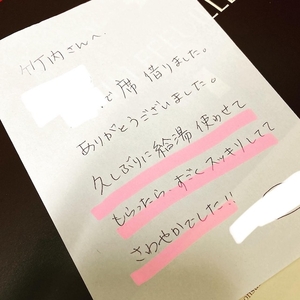 竹内さんへ、
で席借りました。
ありがとうございました。
久しぶりに給湯使わせて
もらったら、すごくスッキリしてて
さわやかでした!!